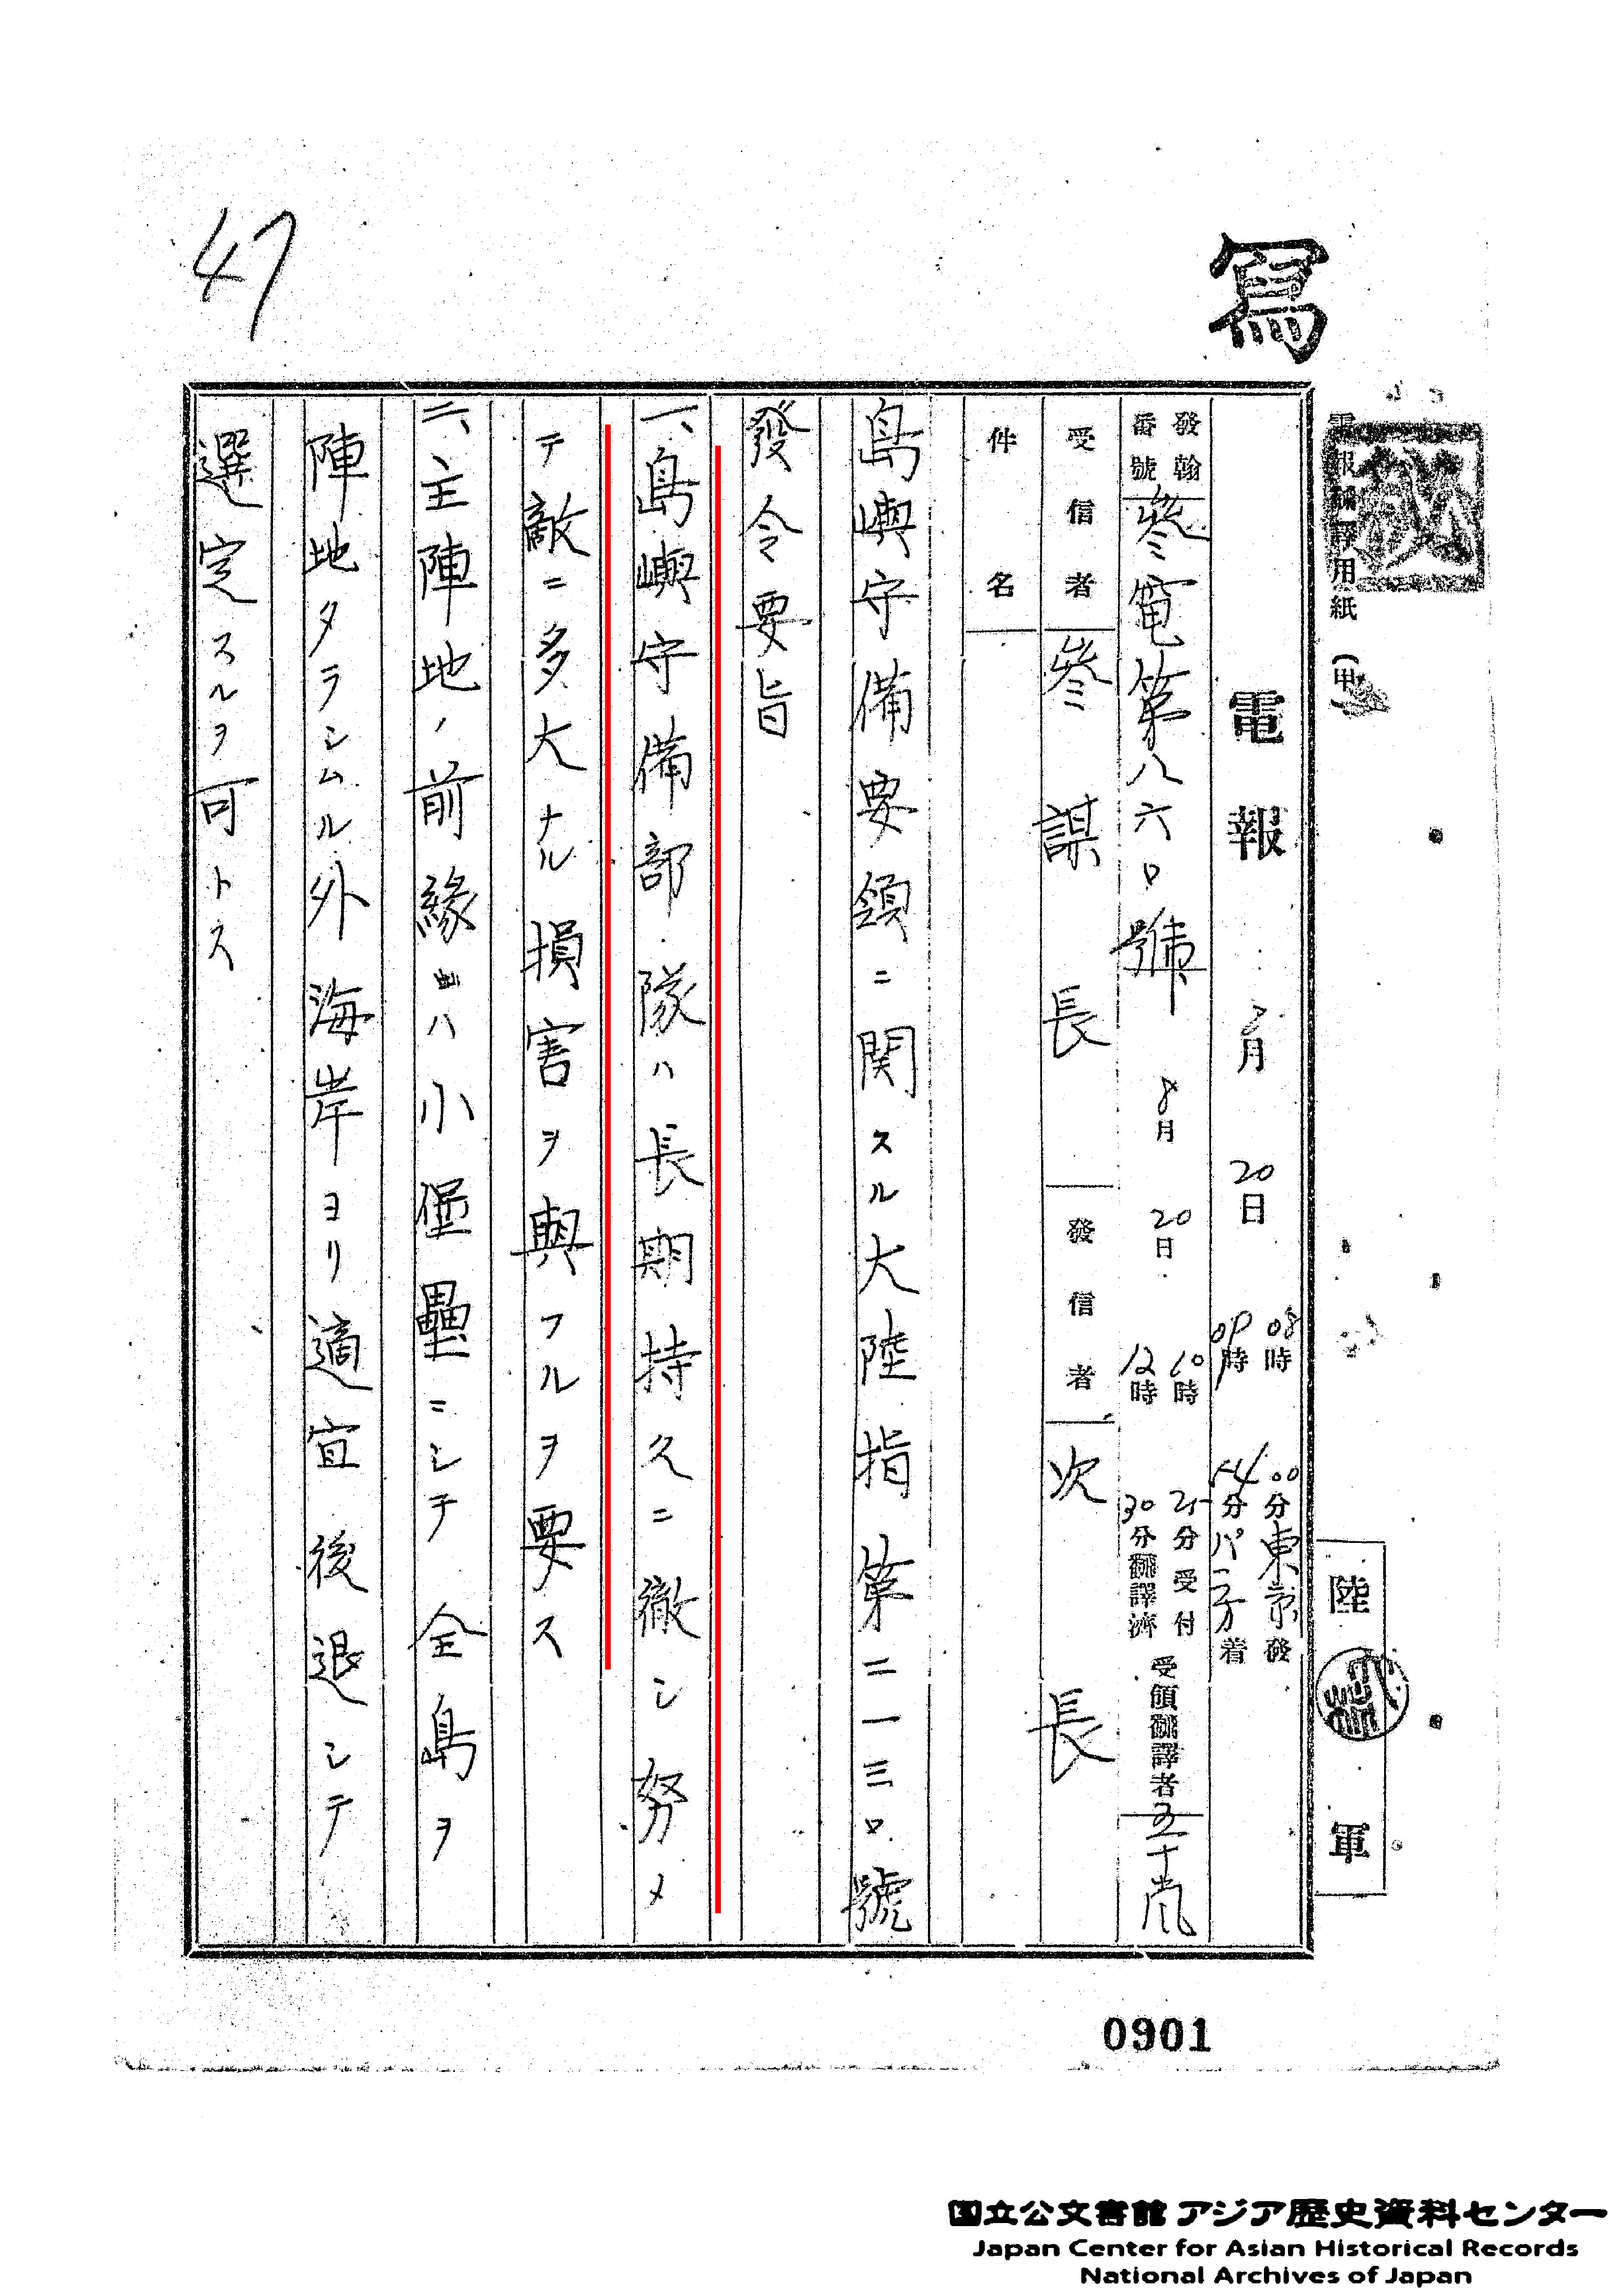 寫
47
電報飜譯用紙(甲)
秘
陸軍
電報 8月 20日 08時 00分 東京發
09時 54分 パラオ着
發翰番號 參電第八六〇號 8月 20日 10時 25分受付
12時 30分飜譯濟 受領飜譯者 五十嵐
受信者 參謀長 發信者 次長
件名
島嶼守備要領ニ関スル大陸指第二一三〇號
發令要旨
一、島嶼守備部隊ハ長期持久ニ徹シ努メ
テ敵ニ多大ナル損害ヲ與フルヲ要ス
二、主陣地ノ前縁ハ小堡壘ニシテ全島ヲ
陣地タラシムル外海岸ヨリ適宜後退シテ
選定スルヲ可トス
0901
国立公文書館 アジア歴史資料センター
Japan Center for Asian Historical Records
National Archives of Japan